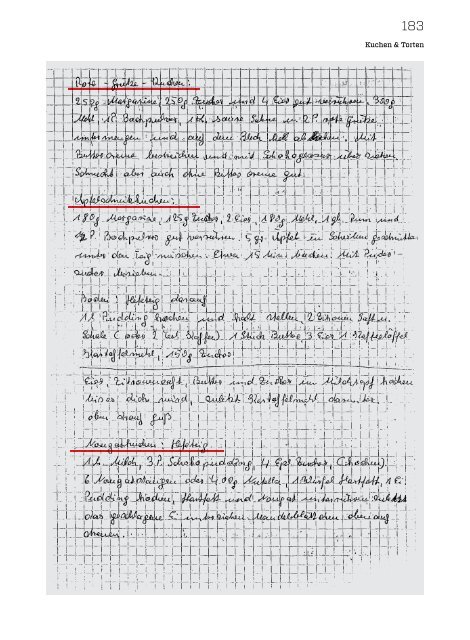 183
Kuchen & Torten
Rote - Grütze - Kuchen:
250g Margarine, 250g Zucker und 4 Eier gut verrühren, 350g
Mehl, 1P. Backpulver, saure Sahne 2 P. rote Grütze
untermengen und auf dem Blech hell abbacken. Mit
Buttercreme bestreichen und mit Schokoguss überziehen.
Schmeckt aber auch ohne Buttercreme gut.
Apfelschnittkuchen:
180g Margarine, 125g Zucker, 2 Eier, 190g Mehl, Rum und
1/2 P. Backpulver gut verrühren. Äpfel in Scheiben geschnitten
unter den Teig mischen. Etwa 15 Min. backen. Mit Puder-
zucker beziehen.
Boden: Hefeteig darauf
1 L Pudding kochen und kalt stellen 2 Zitronen Saft u.
Schale 1 Stück Butter, 3 Eier 1 Eßlöffel
Kartoffelmehl, 150g Zucker.
Eier, Zitronensaft, Butter und Zucker im Milchtopf kochen
bis es dick wird, zuletzt Kartoffelmehl darunter.
oben drauf Guß
Nougatkuchen: Hefeteig
1 L. Milch, 3 P. Schokopudding, 4 Zucker, (kochen)
6 Nougatstangen oder 400g Nutella, 1 Würfel Hartfett, 1 Ei
Pudding kochen, Hartfett und Nougat unterrühren zuletzt
das geschlagene Ei unterziehen Mandelblättchen oben auf
streuen.